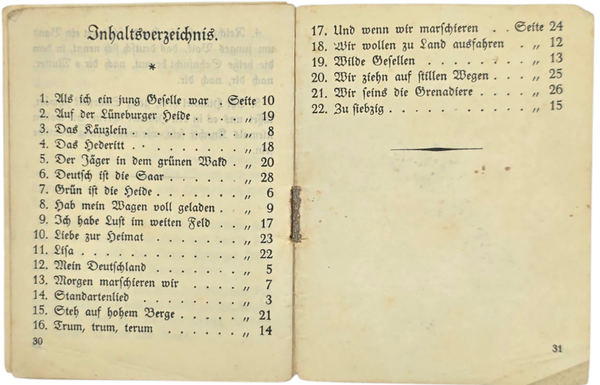 Inhaltsverzeichnis.
*
1. Als ich ein jung Geselle war . Seite 10
2. Auf der Lüneburger Heide . . . „ 19
3. Das Käuzlein . . . . . . . . . „ 8
4. Das Hederitt . . . . . . . . . „ 18
5. Der Jäger in dem grünen Wald . „ 20
6. Deutsch ist die Saar . . . . . . „ 28
7. Grün ist die Heide . . . . . . . „ 6
8. Hab mein Wagen voll geladen . . „ 9
9. Ich habe Lust im weiten Feld . . „ 17
10. Liebe zur Heimat . . . . . . . „ 23
11. Lisa . . . . . . . . . . . . . „ 22
12. Mein Deutschland . . . . . . . „ 5
13. Morgen marschieren wir . . . . „ 7
14. Standartenlied . . . . . . . . „ 3
15. Steh auf hohem Berge . . . . . „ 21
16. Trum, trum, terum . . . . . . „ 14
30
17. Und wenn wir marschieren . . Seite 24
18. Wir wollen zu Land ausfahren . „ 12
19. Wilde Gesellen . . . . . . . . „ 13
20. Wir ziehn auf stillen Wegen . . „ 25
21. Wir seins die Grenadiere . . . „ 26
22. Zu siebzig . . . . . . . . . . „ 15
31